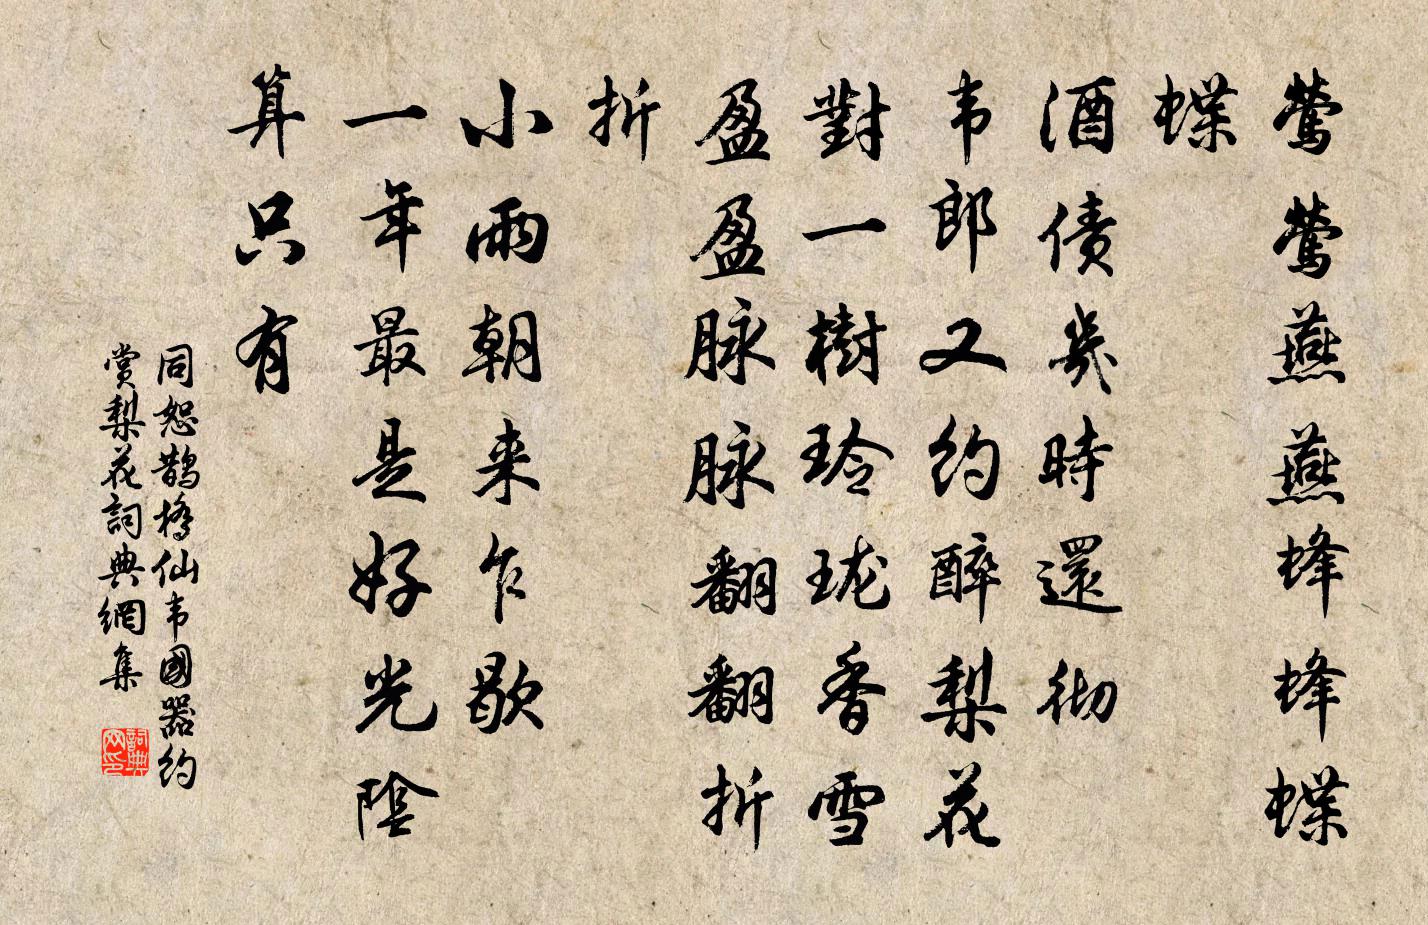 鶯鶯燕燕蜂蜂蝶
蝶
酒債幾時還彻
韦郎又約醉梨花
對一樹玲珑香雪
盈盈脉脉翻翻折
折
小雨朝来乍歇
一年最是好光陰
算只有
同恕鵲橋仙韦國器約
賞梨花詞典網集
詞典
网印